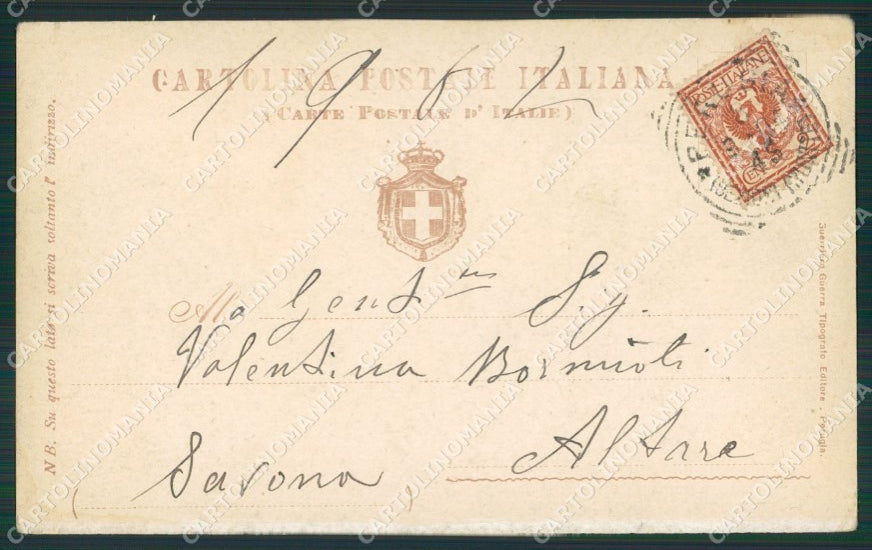 CARTOLINA POSTALE ITALIANA
(CARTE POSTALE D'ITALIE)
1962
POSTE ITALIANE
Alla Gentma Sig.
Valentina Bormioli
Altare
(Savona)
NB. Su questo lato si scriva soltanto l'indirizzo.
Guerriero Guerra Tipografo Editore. Perugia.
CARTOLINOMANIA